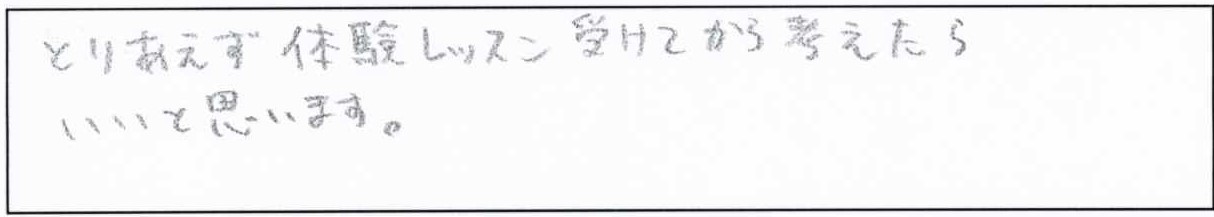 とりあえず体験レッスン受けてから考えたら
いいと思います。